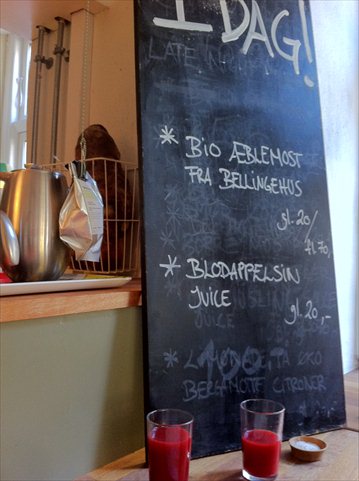 I DAG!
LATE IN
* BIO ÆBLEMOST
FRA BELLINGEHUS
gl. 20/
fl. 70,
* BLODAPPELSIN
JUICE
gl. 20,-
JUICE
*
100
BERGAMOTTE CITRONER